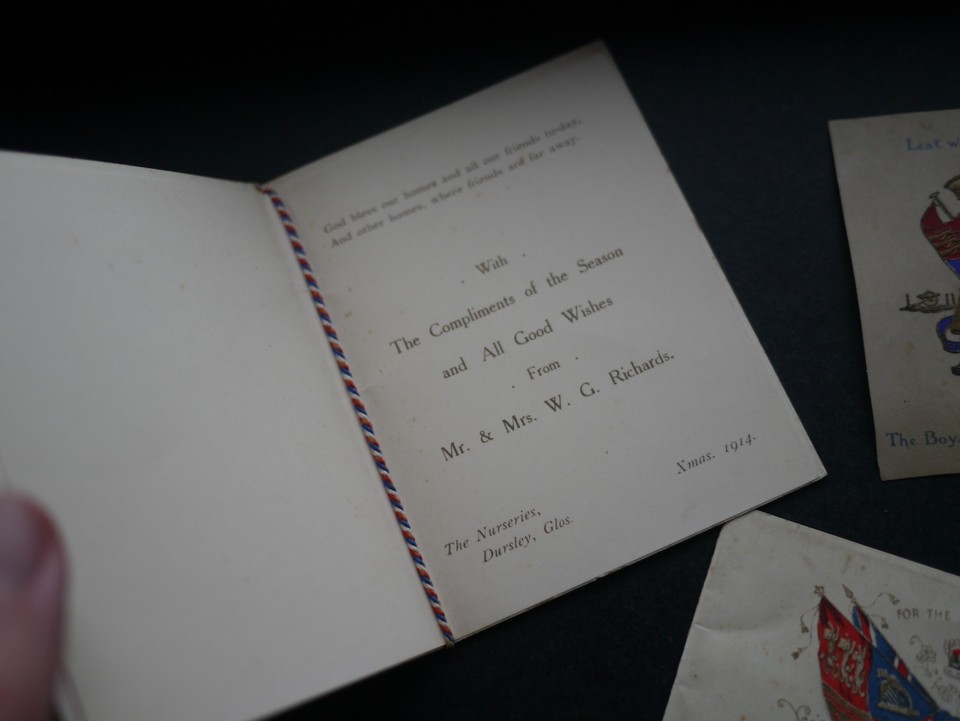 God bless our homes and all our friends to-day,
And other homes, where friends are far away.
With
The Compliments of the Season
and All Good Wishes
From
Mr. & Mrs. W. G. Richards.
Xmas. 1914.
The Nurseries,
Dursley, Glos.
Lest
The Boys
FOR THE